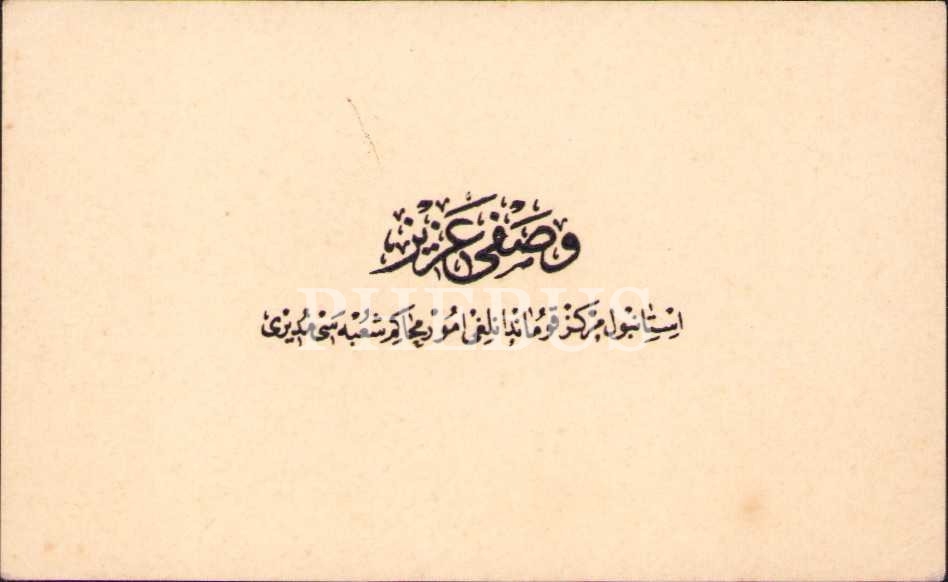 وصفی عزیز
استانبول مرکز قوماندانلغی امور محاکم شعبه سی مدیری
PHEBUS